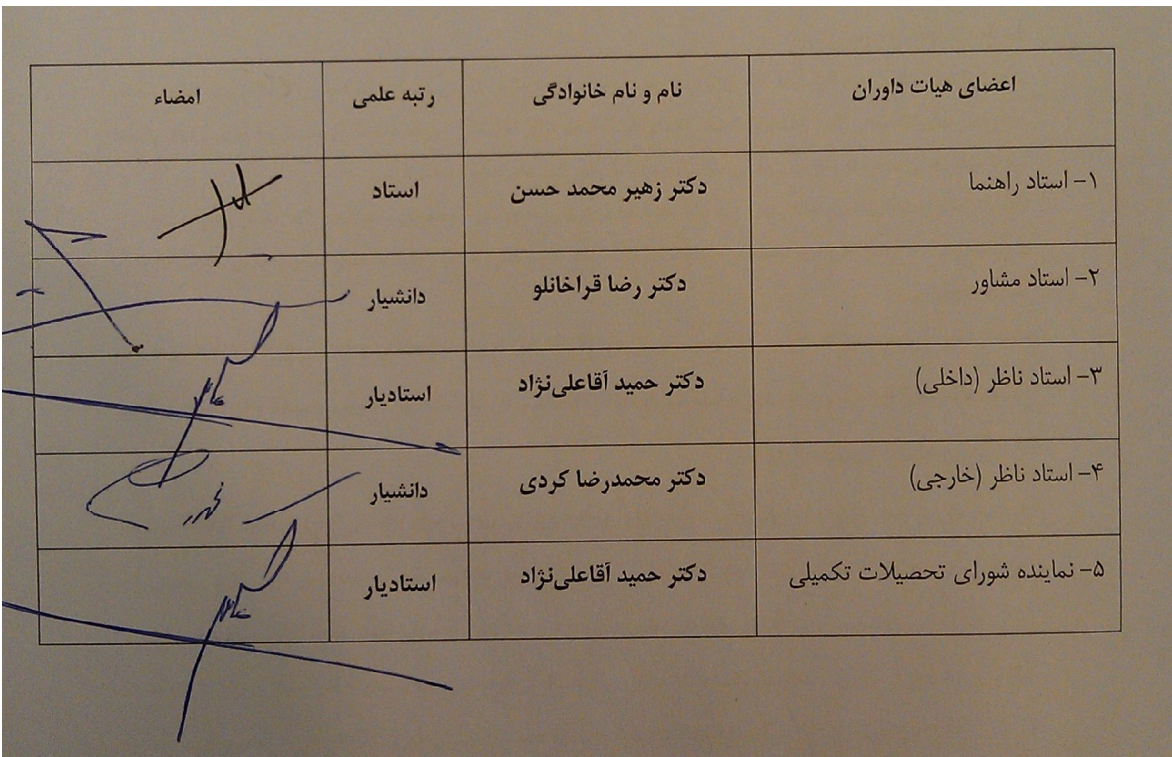 اعضای هیات داوران نام و نام خانوادگی رتبه علمی امضاء
۱- استاد راهنما دکتر زهیر محمد حسن استاد
۲- استاد مشاور دکتر رضا قراخانلو دانشیار
۳- استاد ناظر (داخلی) دکتر حمید آقاعلی‌نژاد استادیار
۴- استاد ناظر (خارجی) دکتر محمدرضا کردی دانشیار
۵- نماینده شورای تحصیلات تکمیلی دکتر حمید آقاعلی‌نژاد استادیار